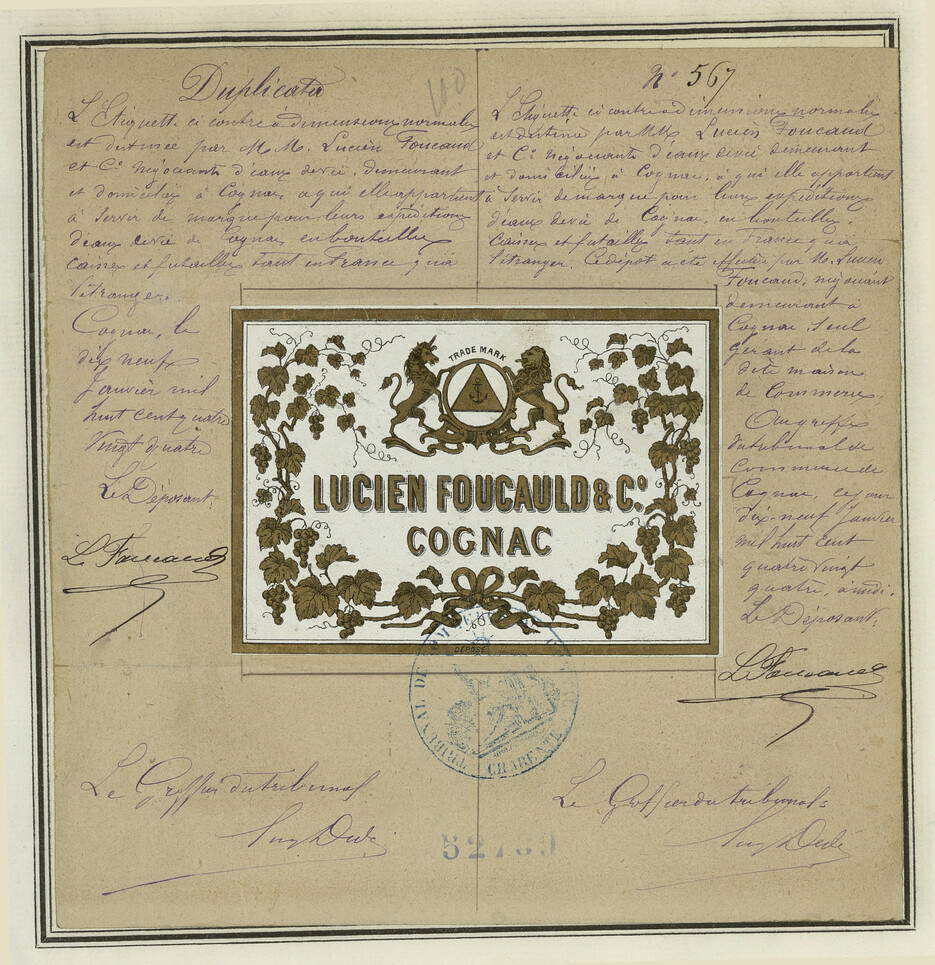 Duplicata
L'Etiquette ci contre à dimensions normales
est destinée par M. M. Lucien Foucauld
et Cie négociants d'eaux de vie, demeurant
et domiciliés à Cognac, à qui elle appartient
à servir de marque pour leurs expéditions
d'eaux de vie de Cognac, en bouteilles
caisses et futailles tant en France qu'à
l'étranger.
Cognac, le
dix neuf
Janvier mil
huit cent quatre
vingt quatre
Le Déposant,
L. Foucauld
110
No 567
L'Etiquette ci contre à dimensions normales
est destinée par MM. Lucien Foucauld
et Cie négociants d'eaux de vie demeurant
et domiciliés, à Cognac, à qui elle appartient
à servir de marque pour leurs expéditions
d'eaux de vie de Cognac, en bouteilles
caisses et futailles tant en France qu'à
l'étranger. Ce dépôt a été effectué par M. Lucien
Foucauld, négociant
demeurant à
Cognac, seul
gérant de la
dite maison
de Commerce.
Au greffe
du tribunal de
Commerce de
Cognac, ce jour
dix-neuf Janvier
mil huit cent
quatre vingt
quatre, à midi.
Le Déposant,
L. Foucauld
TRADE MARK
LUCIEN FOUCAULD & Co.
COGNAC
60
DÉPOSÉ
TRIBUNAL DE COMMERCE
CHARENTE
Le Greffier du tribunal.
Le Greffier du tribunal.
52739